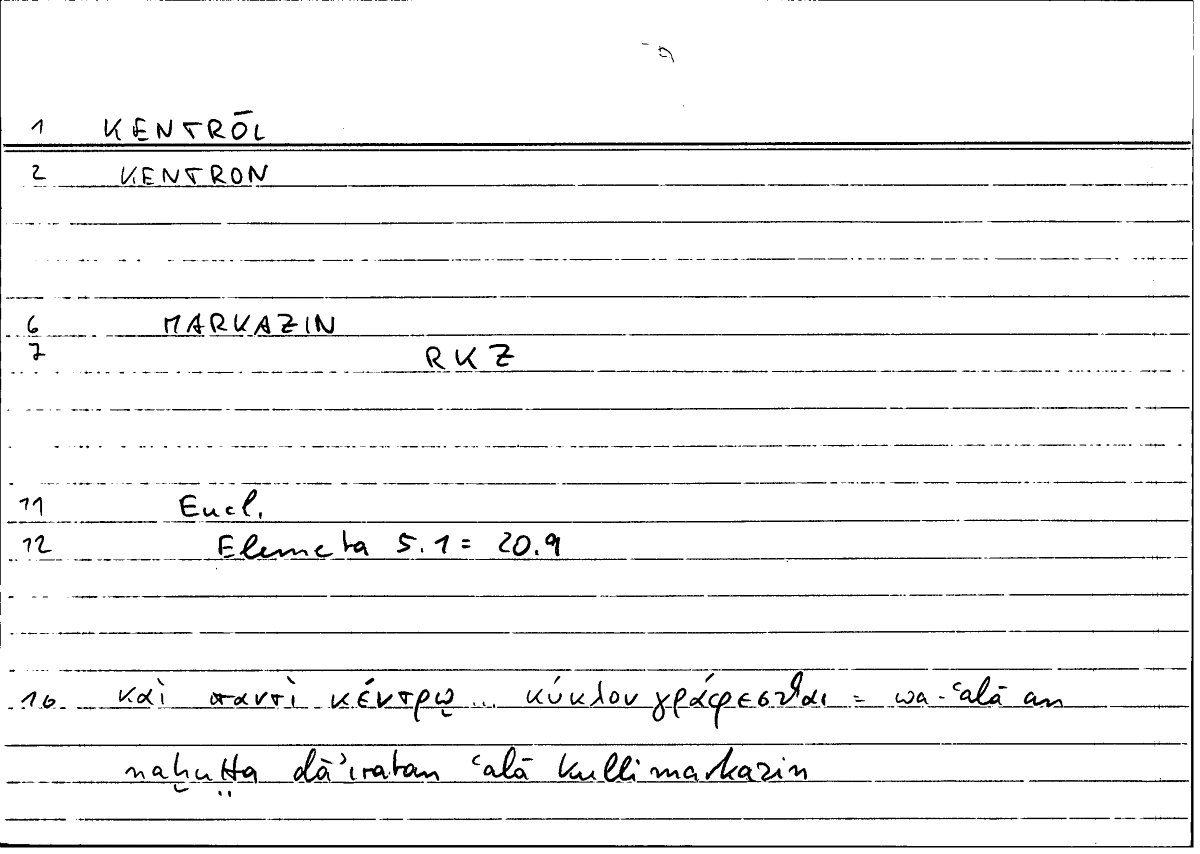 1 KENTRŌL
2 KENTRON
6 MARKAZIN
7 RKZ
11 Eucl.
12 Elemeta 5.1 = 20.9
16 καὶ παντὶ κέντρῳ ... κύκλον γράφεσθαι = wa-ʿalā an
naḫuṭṭa dāʾiratan ʿalā kulli markazin